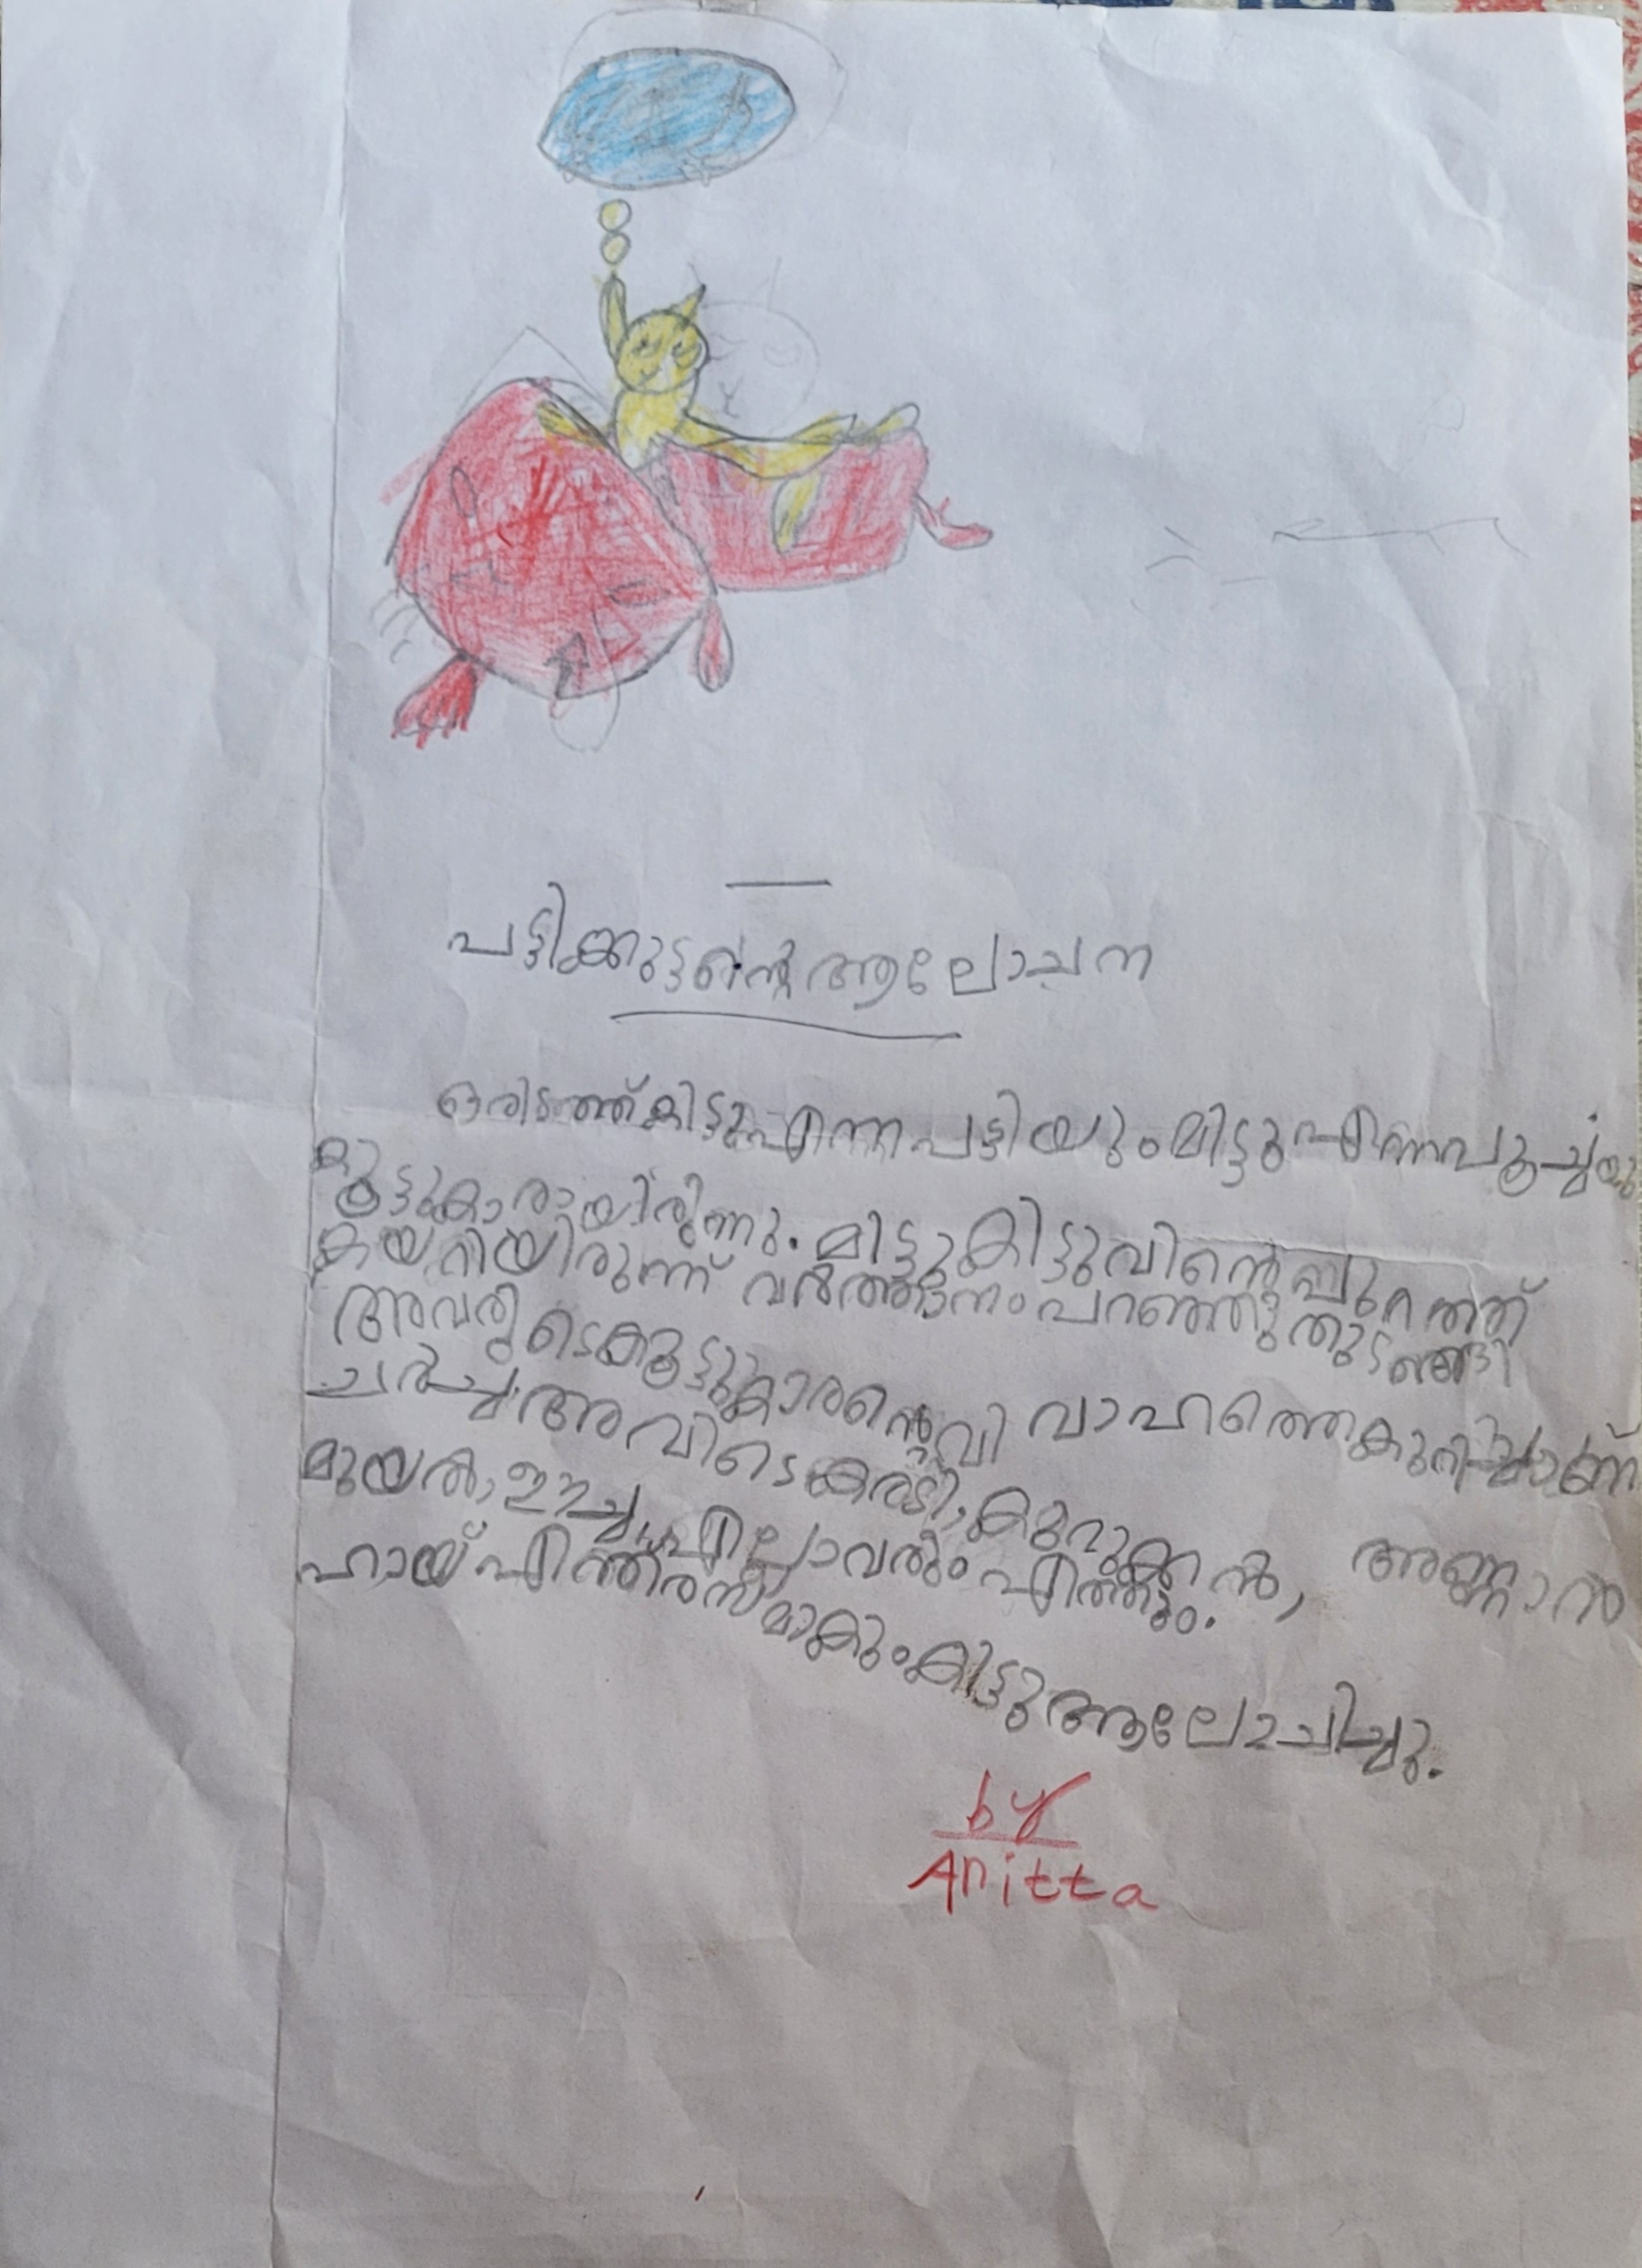 പട്ടിക്കുട്ടന്റെ ആലോചന
ഒരിടത്ത് കിട്ടു എന്ന പട്ടിയും മിട്ടു എന്ന പൂച്ചയും
കൂട്ടുകാരായിരുന്നു. മിട്ടു കിട്ടുവിന്റെ പ്പുറത്ത്
കയറിയിരുന്ന് വർത്താനം പറഞ്ഞു തുടങ്ങി
അവരുടെ കൂട്ടുകാരന്റെ വിവാഹത്തെകുറിച്ചാണ്
ചർച്ച അവിടെ കരടി, കുറുക്കൻ, അണ്ണാൻ
മുയൽ, ഈച്ച, എല്ലാവരും എത്തും.
ഹായ് എന്ത് രസമാകും കിട്ടു ആലോചിച്ചു.
by
Anitta